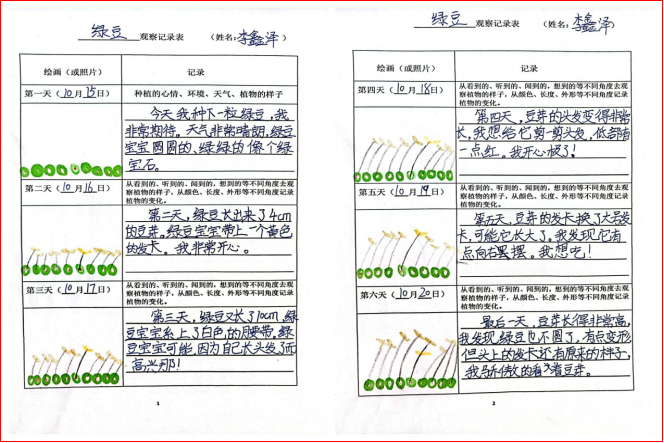 绿豆 观察记录表 (姓名:李鑫泽)
绘画(或照片) 记录
第一天(10月15日) 种植的心情、环境、天气、植物的样子
今天我种下一粒绿豆,我
非常期待。天气非常晴朗,绿豆
宝宝圆圆的、绿绿的像个绿
宝石。
第二天(10月16日) 从看到的、听到的、闻到的,想到的等不同角度去观
察植物的样子,从颜色、长度、外形等不同角度记录
植物的变化。
第二天,绿豆长出来了4cm
的豆芽。绿豆宝宝带上一个黄色
的发卡。我非常开心。
第三天(10月17日) 从看到的、听到的、闻到的,想到的等不同角度去观
察植物的样子,从颜色、长度、外形等不同角度记录
植物的变化。
第三天,绿豆又长了10cm,绿
豆宝宝系上了白色的腰带,绿
豆宝宝可能,因为自己长头发了而
高兴那!
1
绿豆 观察记录表 (姓名:李鑫泽)
绘画(或照片) 记录
第四天(10月18日) 从看到的、听到的、闻到的,想到的等不同角度去观
察植物的样子,从颜色、长度、外形等不同角度记录
植物的变化。
第四天,豆芽的头发变得非常
长,我想给它剪一剪头发,低部有
一点红。我开心极了!
第五天(10月19日) 从看到的、听到的、闻到的,想到的等不同角度去观
察植物的样子,从颜色、长度、外形等不同角度记录
植物的变化。
第五天,豆芽的发卡换了大号发
卡,可能它长大了。我发现它有
点向右摆。我想吃!
第六天(10月20日) 从看到的、听到的、闻到的,想到的等不同角度去观
察植物的样子,从颜色、长度、外形等不同角度记录
植物的变化。
最后一天,豆芽长得非常高,
我发现,绿豆也不圆了,有点变形
但头上的发卡还有原来的样子,
我骄傲的看着豆芽。
2